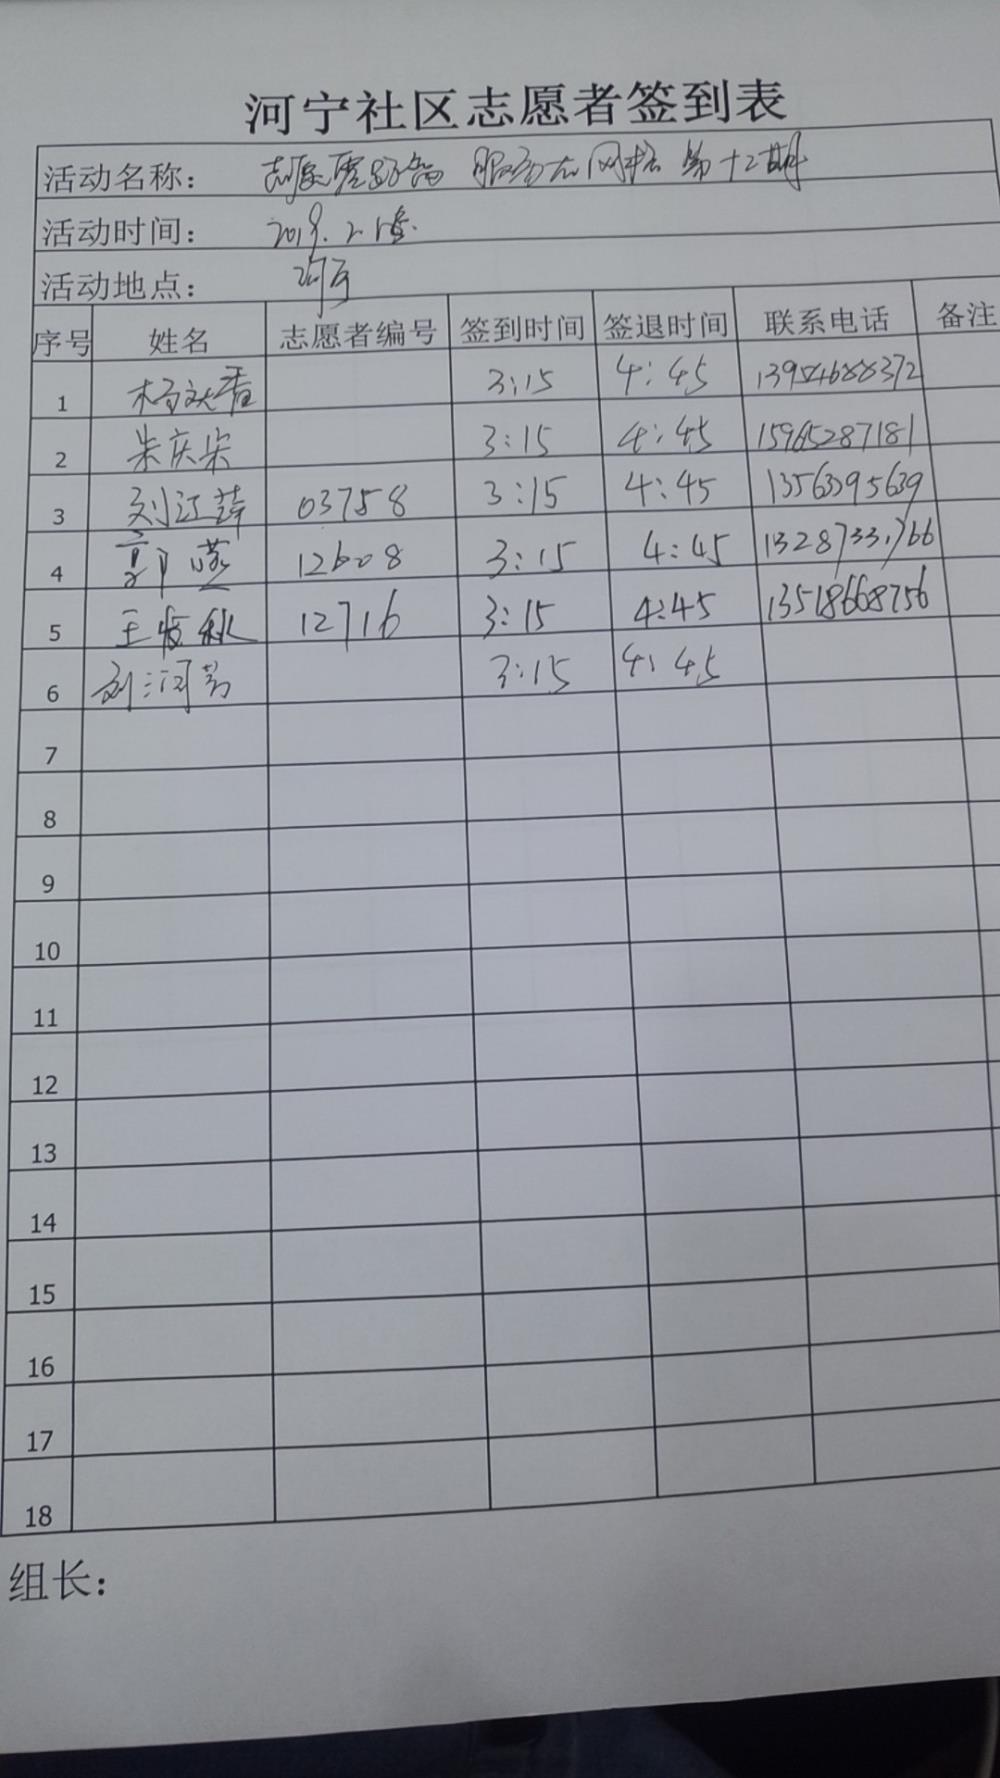 河宁社区志愿者签到表
活动名称： 志愿 服务在网格 第十二期
活动时间： 2019.2.
活动地点： 河宁
序号 姓名 志愿者编号 签到时间 签退时间 联系电话 备注
1 杨文香 3:15 4:45 13954688372
2 朱庆荣 3:15 4:45 15965287181
3 刘江萍 03758 3:15 4:45 13563395639
4 郭燕 12608 3:15 4:45 13287331766
5 王 秋 12716 3:15 4:45 13518668756
6 刘河芳 3:15 4:45
7
8
9
10
11
12
13
14
15
16
17
18
组长：